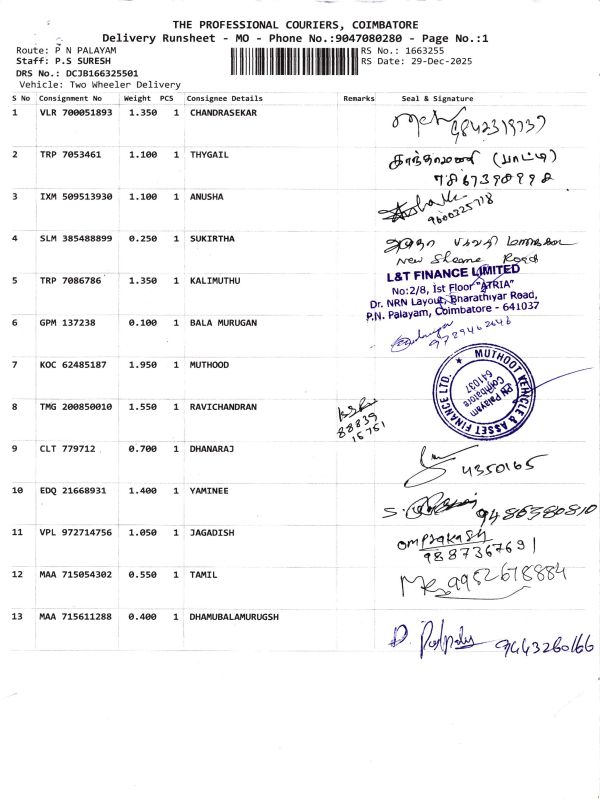 THE PROFESSIONAL COURIERS, COIMBATORE
Delivery Runsheet - MO - Phone No.:9047080280 - Page No.:1
Route: P N PALAYAM
RS No.: 1663255
Staff: P.S SURESH
RS Date: 29-Dec-2025
DRS No.: DCJB166325501
Vehicle: Two Wheeler Delivery
S No Consignment No Weight PCS Consignee Details Remarks Seal & Signature
1 VLR 700051893 1.350 1 CHANDRASEKAR
9842319737
2 TRP 7053461 1.100 1 THYGAIL
(பாட்டி)
7867398998
3 IXM 509513930 1.100 1 ANUSHA
9600325718
4 SLM 385488899 0.250 1 SUKIRTHA
New Road
5 TRP 7086786 1.350 1 KALIMUTHU
L&T FINANCE LIMITED
No:2/8, Ist Floor "ATRIA"
Dr. NRN Layout, Bharathiyar Road,
P.N. Palayam, Coimbatore - 641037
6 GPM 137238 0.100 1 BALA MURUGAN
9789462646
7 KOC 62485187 1.950 1 MUTHOOD
MUTHOOT VEHICLE & ASSET FINANCE LTD.
PN Palayam
Coimbatore
641037
8 TMG 200850010 1.550 1 RAVICHANDRAN
88839
15751
9 CLT 779712 0.700 1 DHANARAJ
4350165
10 EDQ 21668931 1.400 1 YAMINEE
S.
9486380810
11 VPL 972714756 1.050 1 JAGADISH
omprakash
9887367691
12 MAA 715054302 0.550 1 TAMIL
9952678884
13 MAA 715611288 0.400 1 DHAMUBALAMURUGSH
9443260166